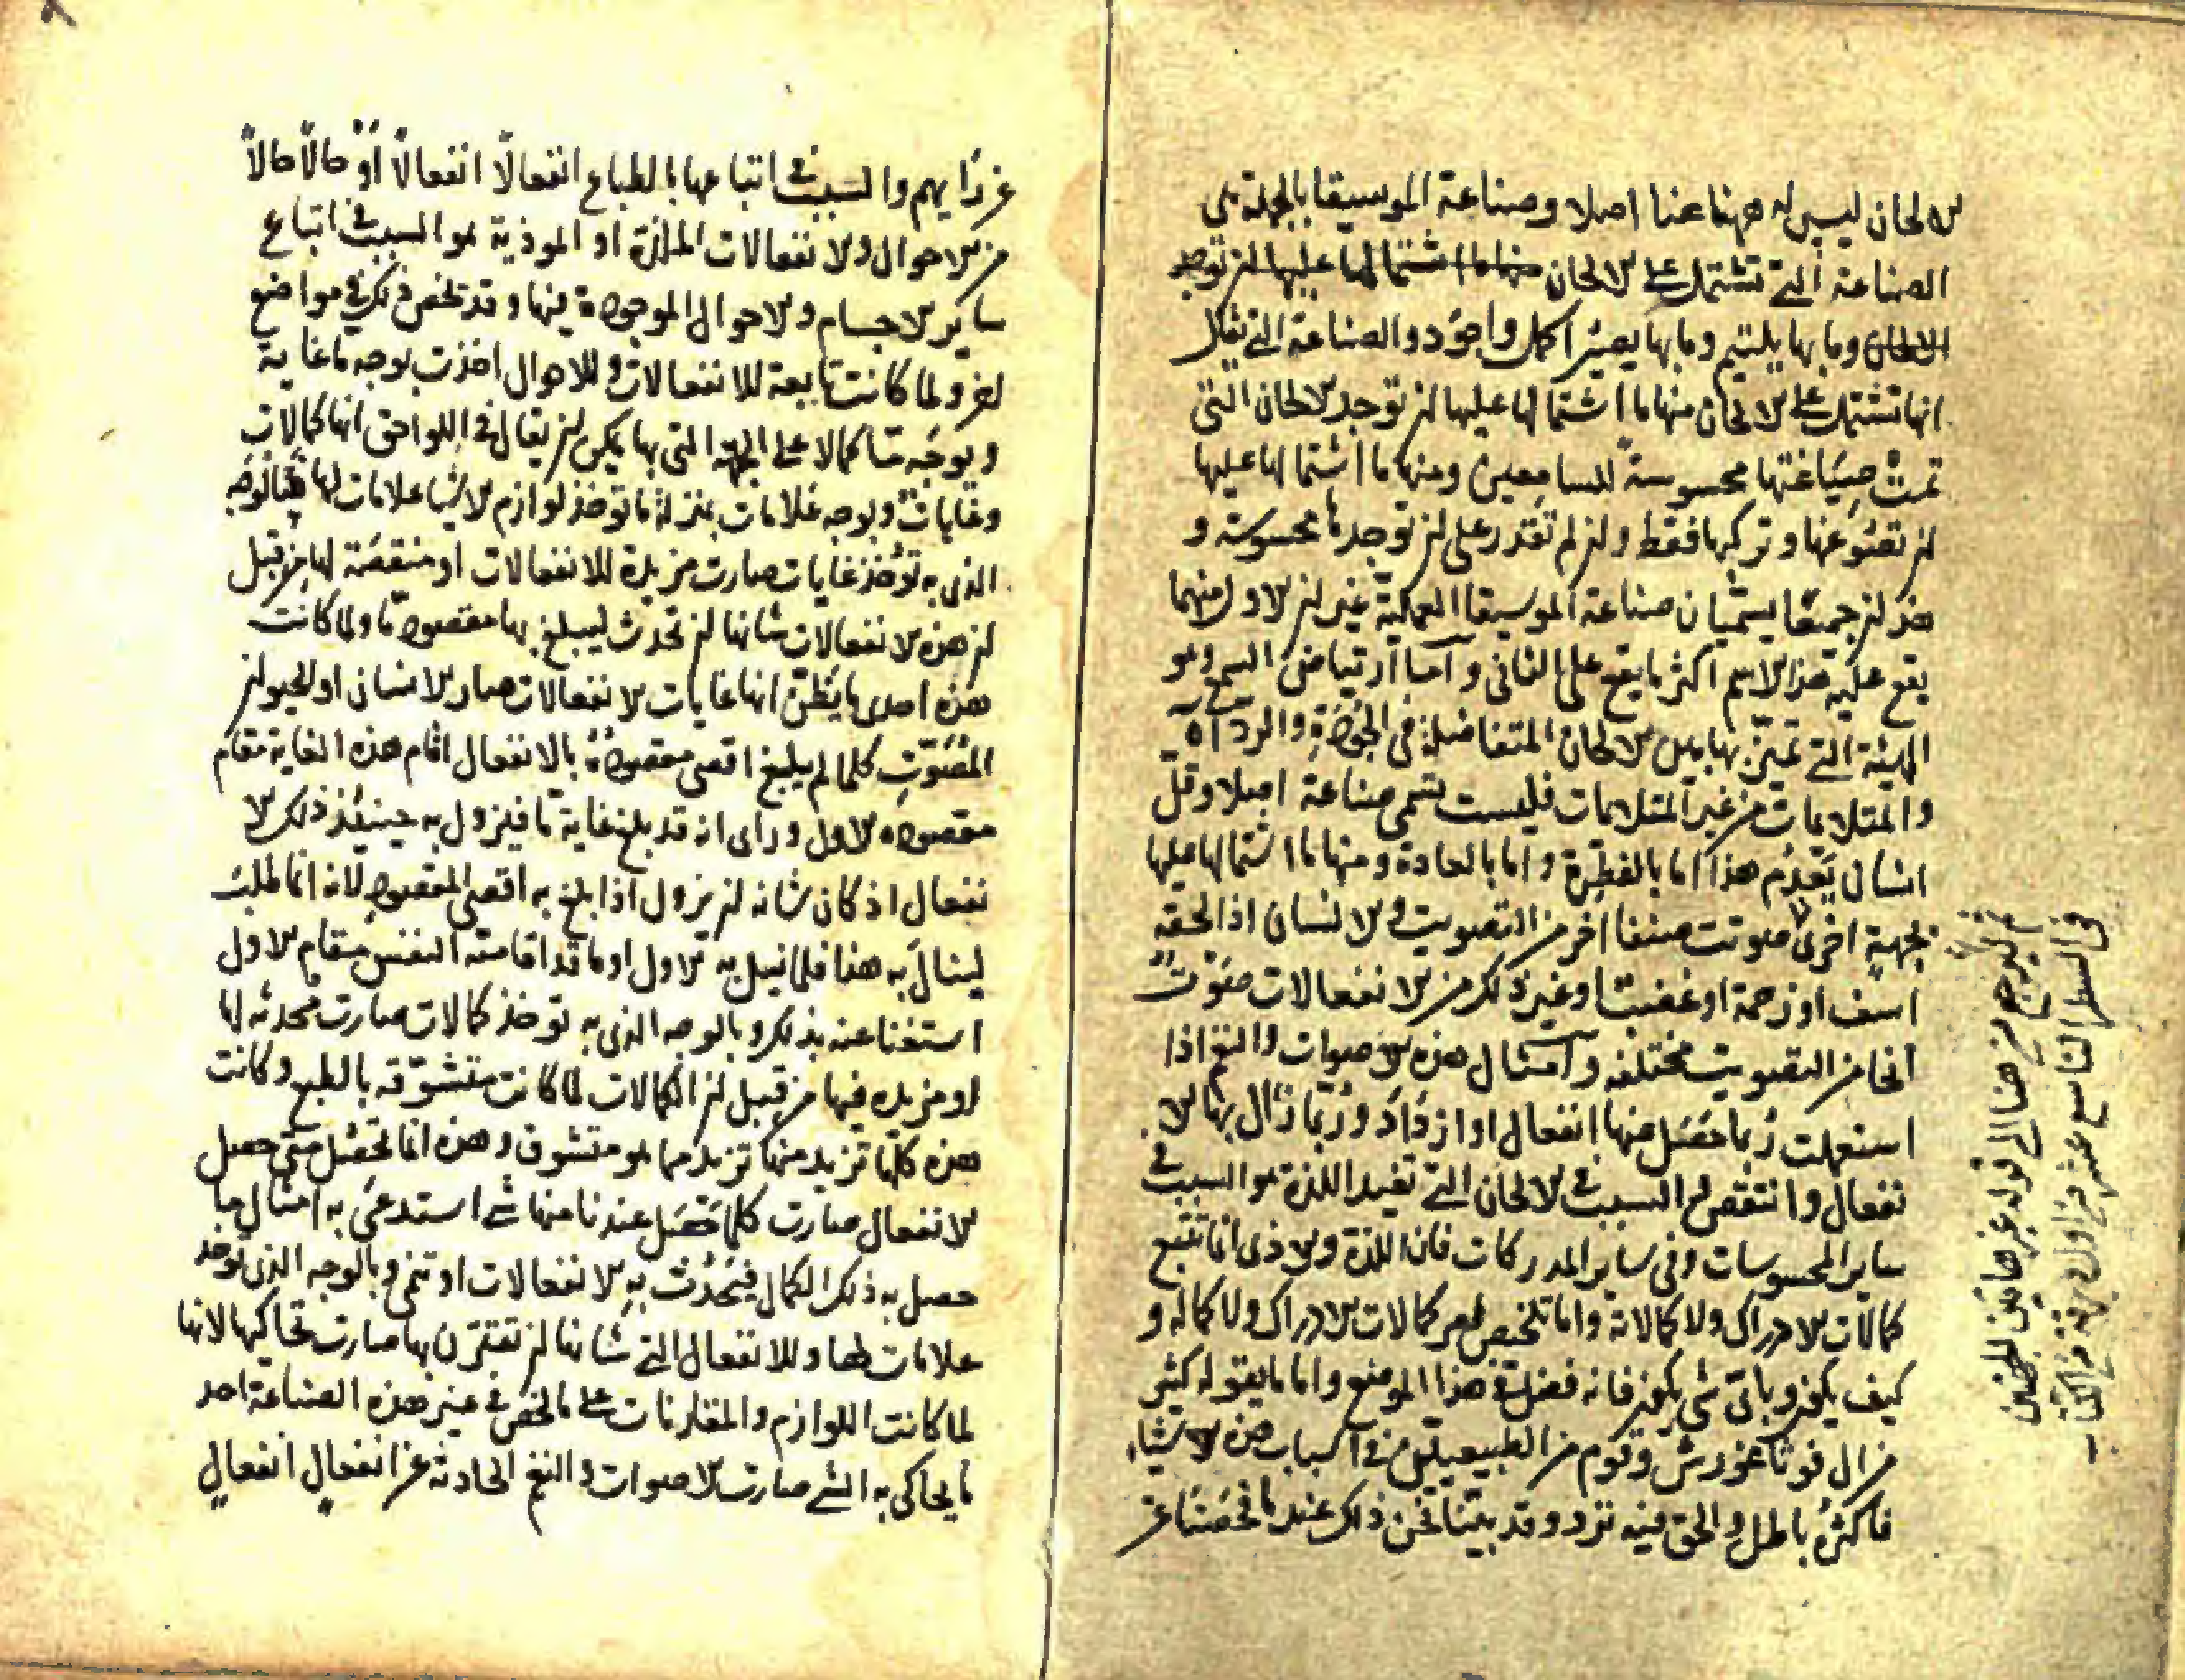 الالحان ليس له ههنا عنا اصلا وصناعة الموسيقا بالجملة هى
الصناعة التى تشتمل على الالحان منها ما اشتمالها عليها ان توجد
الالحان وما بها يلتيم وما بها يصير اكمل واجود والصناعة التى يقال
انها تشتمل على الالحان منها ما اشتمالها عليها ان توجد الالحان التى
تمت صياغتها محسوسة للسامعين ومنها ما اشتمالها عليها
ان تصوغها وتركبها فقط وان لم تقدر على ان توجدها محسوسة و
هذان جميعا يسميان صناعة الموسيقا العملية غير ان الاول منهما
يقع عليه هذا الاسم اكثر ما يقع على الثانى واما ارتياض السمع وهو
الهيئة التى تميز بها بين الالحان المتفاضلة فى الجودة والرداة
والمتلايمات من غير المتلايمات فليست تسمى صناعة اصلا وقل
انسان يعدم هذا اما بالفطرة واما بالعادة ومنها ما اشتمالها عليها
بجهة اخرى صوتت صنفا اخر من التصويت والانسان اذا لحقه
اسف او رحمة او غضب او غير ذلك من الانفعالات صوت
انحا من التصويت مختلفة وامثال هذه الاصوات والنغم اذا
استعملت ربما حصل عنها انفعال او ازداد وربما زال بها الا
نفعال وانتقص السبب فى الالحان التى تفيد اللذة هو السبب فى
ساير المحسوسات وفى ساير المدركات فان اللذة والاذى انما تتبع
كمالات الادراك ولا كمالاته واما تلخيص امر كمالات الادراك ولا كماله و
كيف يكون وباى شى يكون فانه فضل فى هذا الموضع واما ما يقوله كثير
من ال فوثاغورش وقوم من الطبيعيين فى اسباب هذه الاشياء
فاكثره باطل والحق فيه نزر وقد بينا نحن ذلك عند ما فحصنا عن
ثم ليرجع من هنا الى قوله غرضا من اللحنين
فى السطر التاسع عشر من اول ورقة من الكتاب
عن رايهم والسبب فى اتباعها بالطباع انفعالا انفعالا او حالا حالا
من الاحوال والانفعالات الملذة او الموذية هو السبب فى اتباع
ساير الاجسام والاحوال الموجودة فيها وقد تلخص ذلك فى مواضع
اخر ولما كانت تابعة للانفعالات وللاحوال اخذت بوجه ما غاية
وبوجه ما كمالا على الجهة التى بها يمكن ان يقال فى اللواحق انها كمالات
وغايات وبوجه علامات بمنزلة ما توخذ لوازم الاشيا علامات لها فبالوجه
الذى به توخذ غايات صارت مزيدة للانفعالات او منقصة لها من قبل
ان هذه الانفعالات شانها ان تحدث ليبلغ بها مقصود ما ولما كانت
هذه احدى ما يظن انها غايات الانفعالات صار الانسانى او الحيوان
المصوت كلما لم يبلغ اقصى مقصوده بالانفعال اقام هذه الغاية مقام
مقصوده الاول وراى انه قد بلغ غاية ما فيزول به حينئذ ذلك الا
نفعال اذ كان شانه ان يزول اذا بلغ به اقصى المقصود لانه انما طلب
لينال به هذا فلما نيل به الاول او ما قد اقامته النفس مقام الاول
استغنا عنه بذلك وبالوجه الذى به توخذ كمالات صارت محدثة لها
او مزيده فيها من قبل ان الكمالات لما كانت متشوقه بالطبع وكانت
هذه كلما تزيد منها تزيد مما هو متشوق وهذه انما تحصل متى حصل
الانفعال صارت كلما حصل عندنا منها شى استدعى به امثال ما
حصل به ذلك الكمال فيحدث به الانفعالات او تنمى وبالوجه الذى توخذ
علامات لها وللانفعال التى شانها ان تقترن بها صارت تحاكيها لانها
لما كانت اللوازم والمقارنات على ما لخص فى غير هذه الصناعة احد
ما يحاكى به الشى صارت الاصوات والنغم الحادثة عن انفعال انفعال